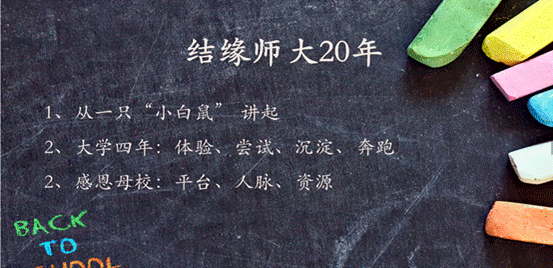 结缘师大20年
1、从一只“小白鼠” 讲起
2、大学四年：体验、尝试、沉淀、奔跑
2、感恩母校：平台、人脉、资源
BACK
TO